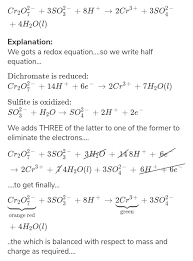 Cr₂O₇²⁻ + 3SO₃²⁻ + 8H⁺ → 2Cr³⁺ + 3SO₄²⁻
+ 4H₂O(l)
Explanation:
We gots a redox equation...so we write half
equation...
Dichromate is reduced:
Cr₂O₇²⁻ + 14H⁺ + 6e⁻ → 2Cr³⁺ + 7H₂O(l)
Sulfite is oxidized:
SO₃²⁻ + H₂O → SO₄²⁻ + 2H⁺ + 2e⁻
We adds THREE of the latter to one of the former to
eliminate the electrons....
Cr₂O₇²⁻ + 3SO₃²⁻ + 3H₂O + 14 8H⁺ + 6e⁻
→ 2Cr³⁺ + 7 4H₂O(l) + 3SO₄²⁻ + 6H⁺ + 6e⁻
...to get finally...
Cr₂O₇²⁻ + 3SO₃²⁻ + 8H⁺ → 2Cr³⁺ + 3SO₄²⁻
orange red green
+ 4H₂O(l)
..the which is balanced with respect to mass and
charge as required....